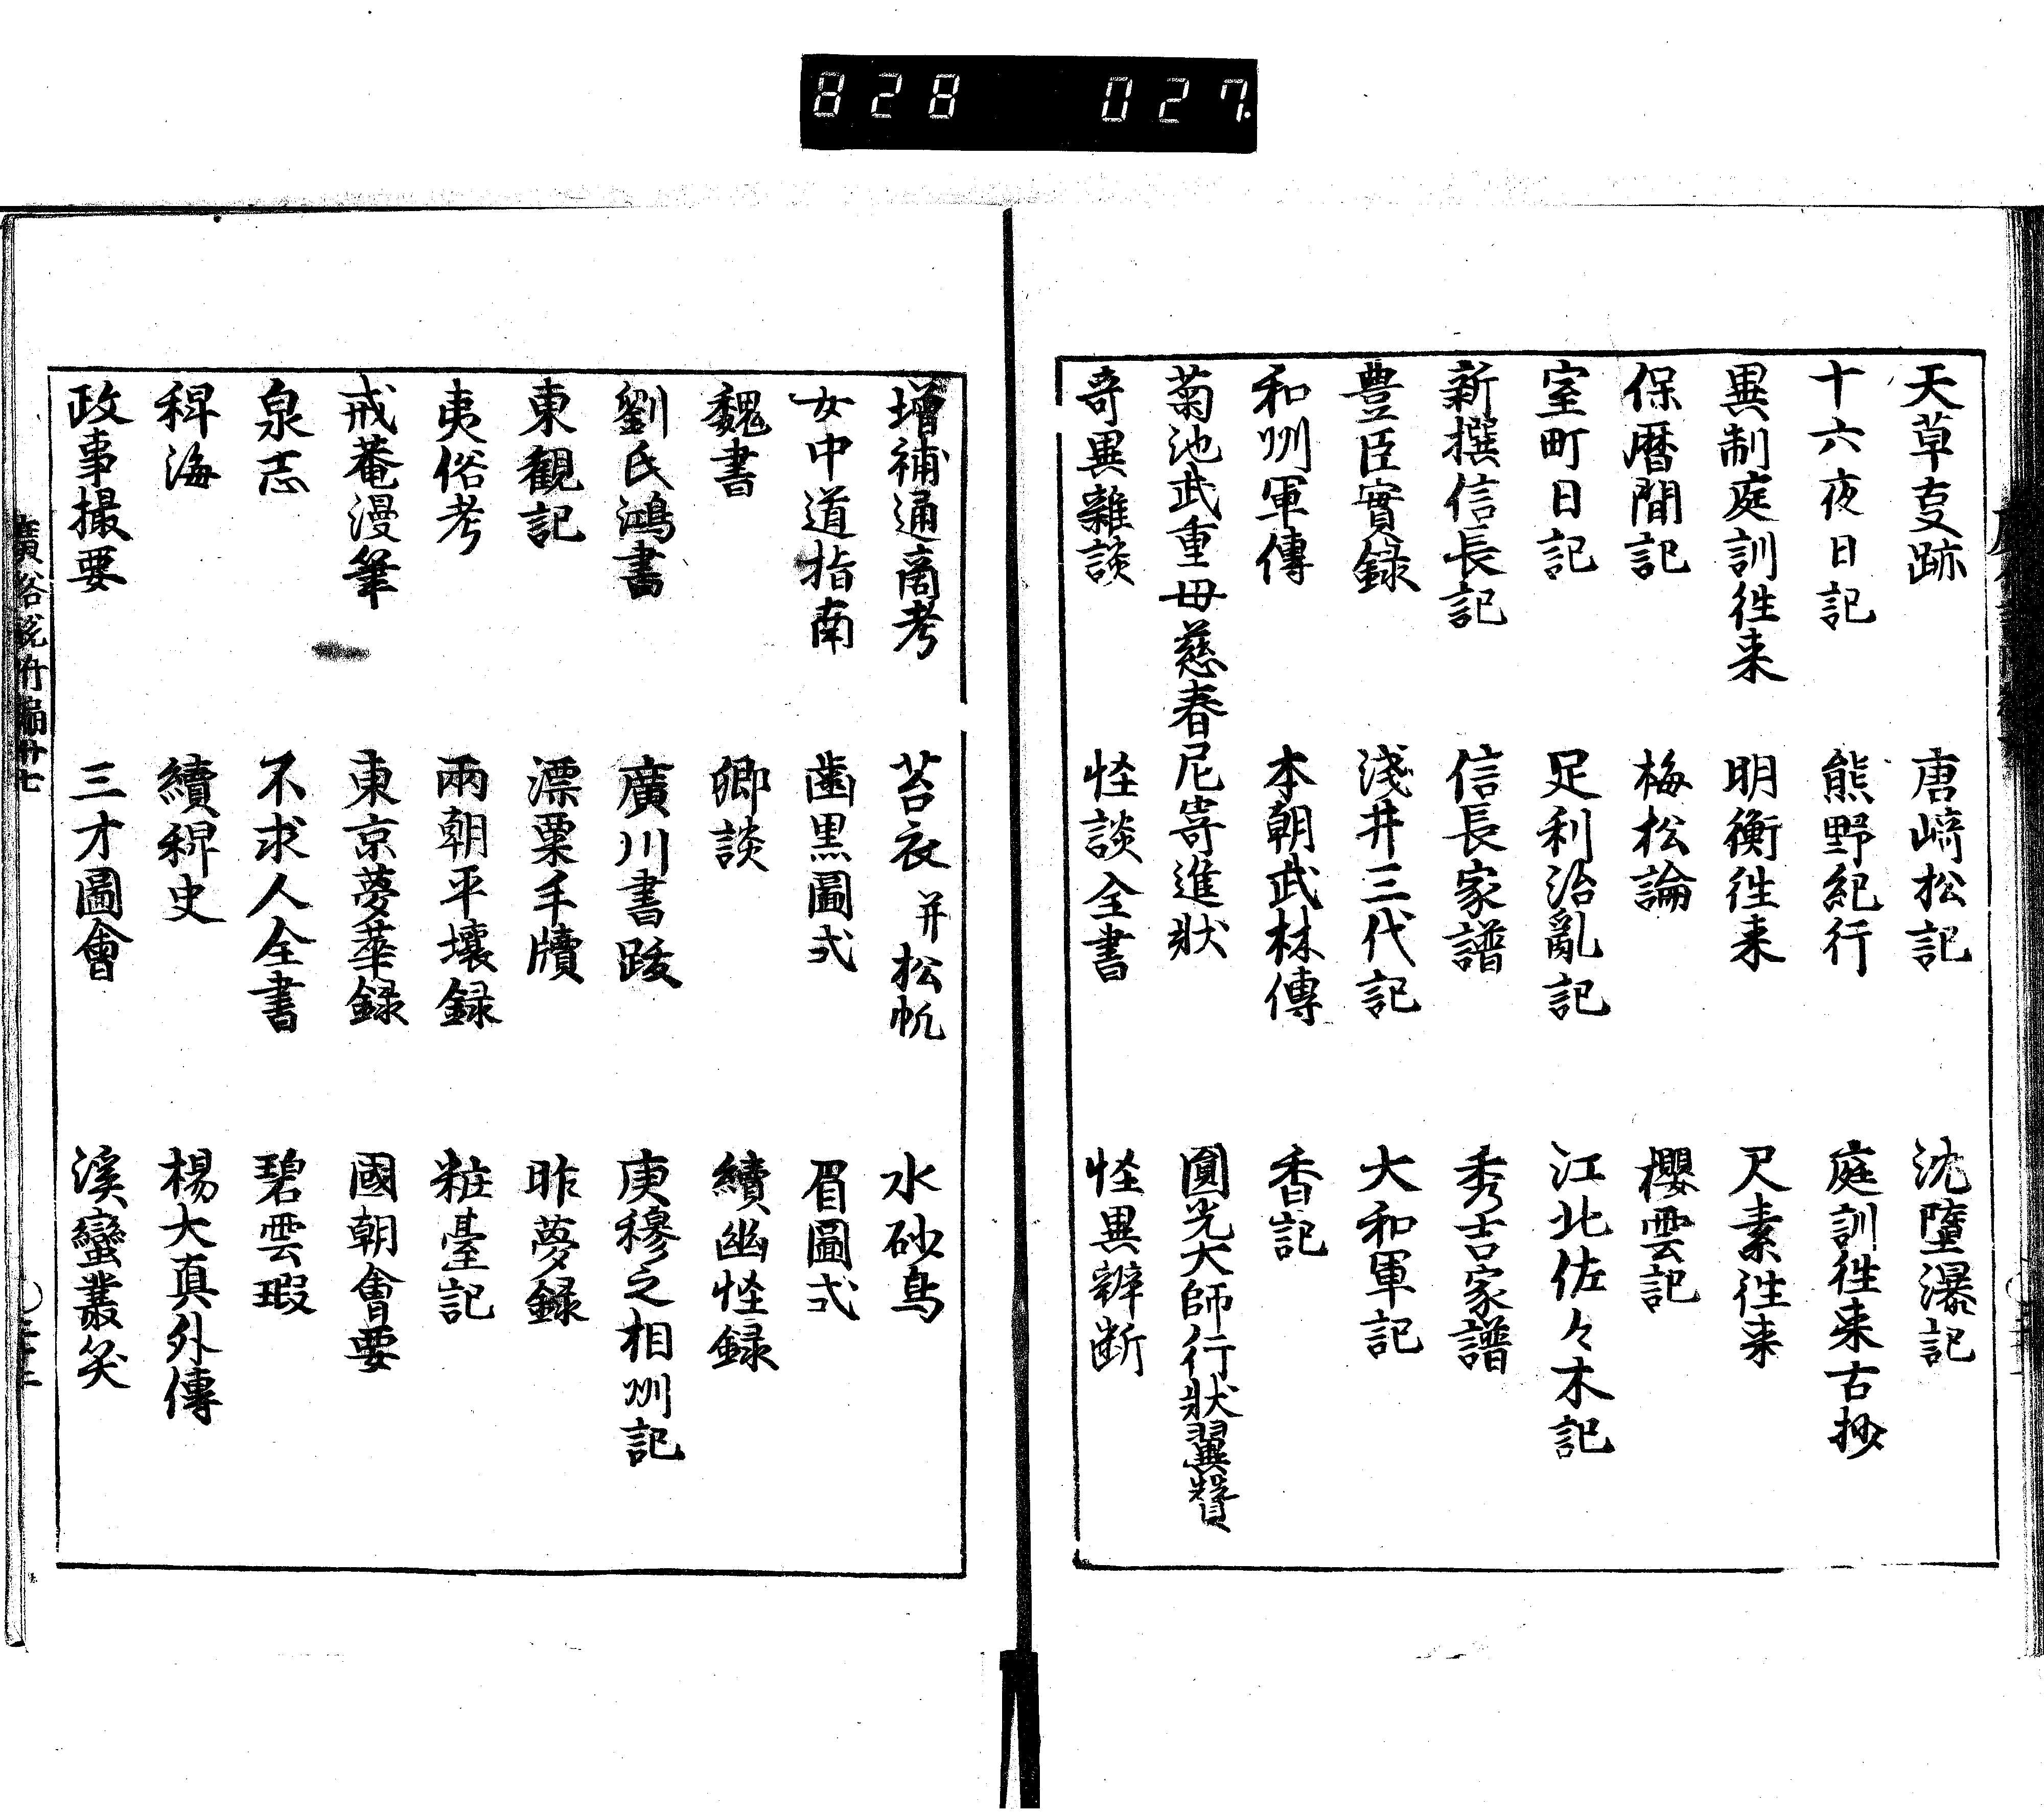 828 027.
天草叓跡 唐﨑松記 沈墮瀑記
十六夜日記 熊野紀行 庭訓徃来古抄
異制庭訓徃来 明衡徃来 尺素徃来
保暦間記 梅松論 櫻雲記
室町日記 足利治亂記 江北佐々木記
新撰信長記 信長家譜 秀吉家譜
豊臣實録 淺井三代記 大和軍記
和州軍傳 本朝武林傳 香記
菊池武重母慈春尼寄進状 圓光大師行状翼賛
奇異雜談 怪談全書 怪異辨断
增補通商考 苔衣并松帆 水砂鳥
女中道指南 歯黒圖式 眉圖式
魏書 卿談 續幽怪録
劉氏鴻書 廣川書跋 庚穆之相州記
東觀記 漂粟手牘 昨夢録
夷俗考 兩朝平壤録 粧臺記
戒菴漫筆 東京夢華録 國朝會要
泉志 不求人全書 碧雲瑕
稗海 續稗史 楊大真外傳
政事撮要 三才圖會 溪蠻叢笑
廣俗説附編廿七